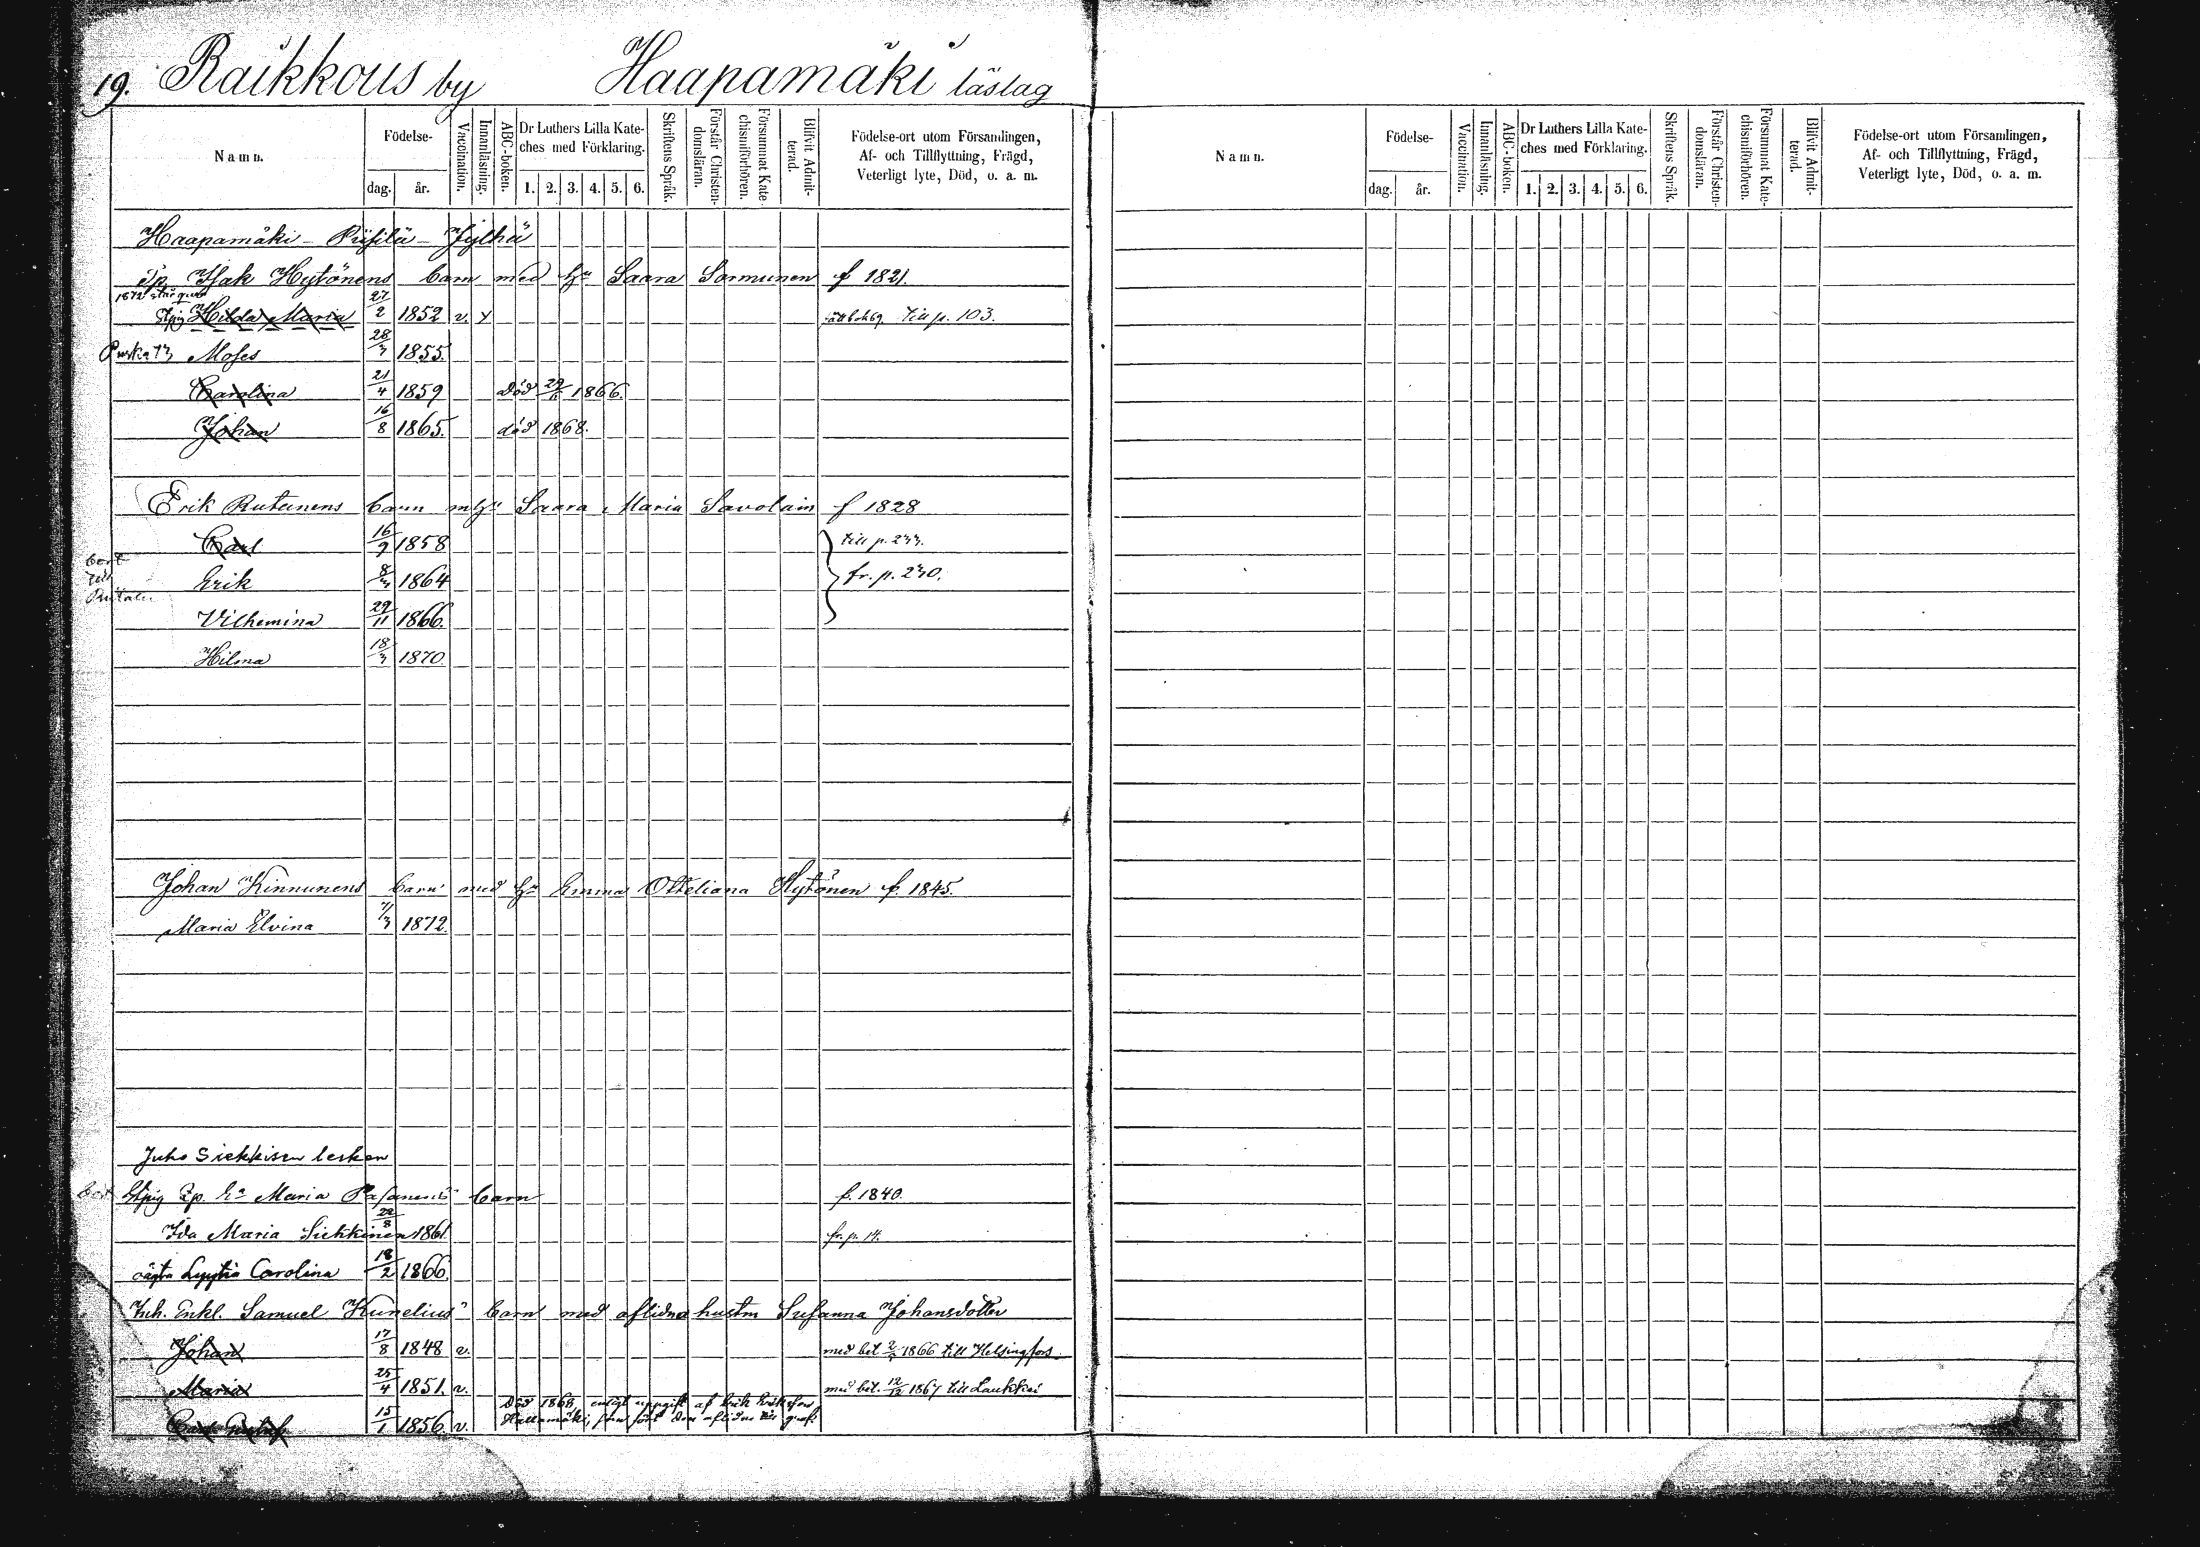 19. Raikkous by Haapamäki läslag
Namn.
Födelse-
dag.
år.
Vaccination.
Innanläsning.
ABC-boken.
Dr Luthers Lilla Kate-
ches med Förklaring.
1. 2. 3. 4. 5. 6.
Skriftens Språk.
Förstår Christen-
domsläran.
Försummat Kate-
chismiförhören.
Blifvit Admit-
terad.
Födelse-ort utom Församlingen,
Af- och Tillflyttning, Frägd,
Veterligt lyte, Död, o. a. m.
Namn.
Födelse-
dag.
år.
Vaccination.
Innanläsning.
ABC-boken.
Dr Luthers Lilla Kate-
ches med Förklaring.
1. 2. 3. 4. 5. 6.
Skriftens Språk.
Förstår Christen-
domsläran.
Försummat Kate-
chismiförhören.
Blifvit Admit-
terad.
Födelse-ort utom Församlingen,
Af- och Tillflyttning, Frägd,
Veterligt lyte, Död, o. a. m.
Haapamäki
Isak Hytönens barn med Saara Sormunen f 1821.
1872
Hilda Maria 27/2 1852 v. till p. 103.
Moses 28/3 1855.
Carolina 21/4 1859 död 1866.
Johan 16/8 1865. död 1868.
Erik Rutanens barn Saara Maria Savolain f 1828
Carl 16/9 1858 till p.
bort
Erik 8/3 1864 fr. p. 230.
Vilhemina 29/11 1866.
Hilma 18/3 1870.
Johan Kinnunens barn med Emma Otteliana Hytönen f. 1845.
Maria Elvina 1872.
Juho Siekkisen lesken
Maria Pasanens barn f. 1840.
Ida Maria Siekkinen 1861. fr. p. 14.
oägta Carolina 18/2 1866.
Inh. Enkl. Samuel Kunelius' barn med aflidna hustru Susanna Johansdotter
Johan 17/8 1848 v. med bet 1866 till Helsingfors.
Maria 25/4 1851. v. med bet. 12/12 1867 till
Död 1868 enligt uppgift af Erik
15/1 1856 v.